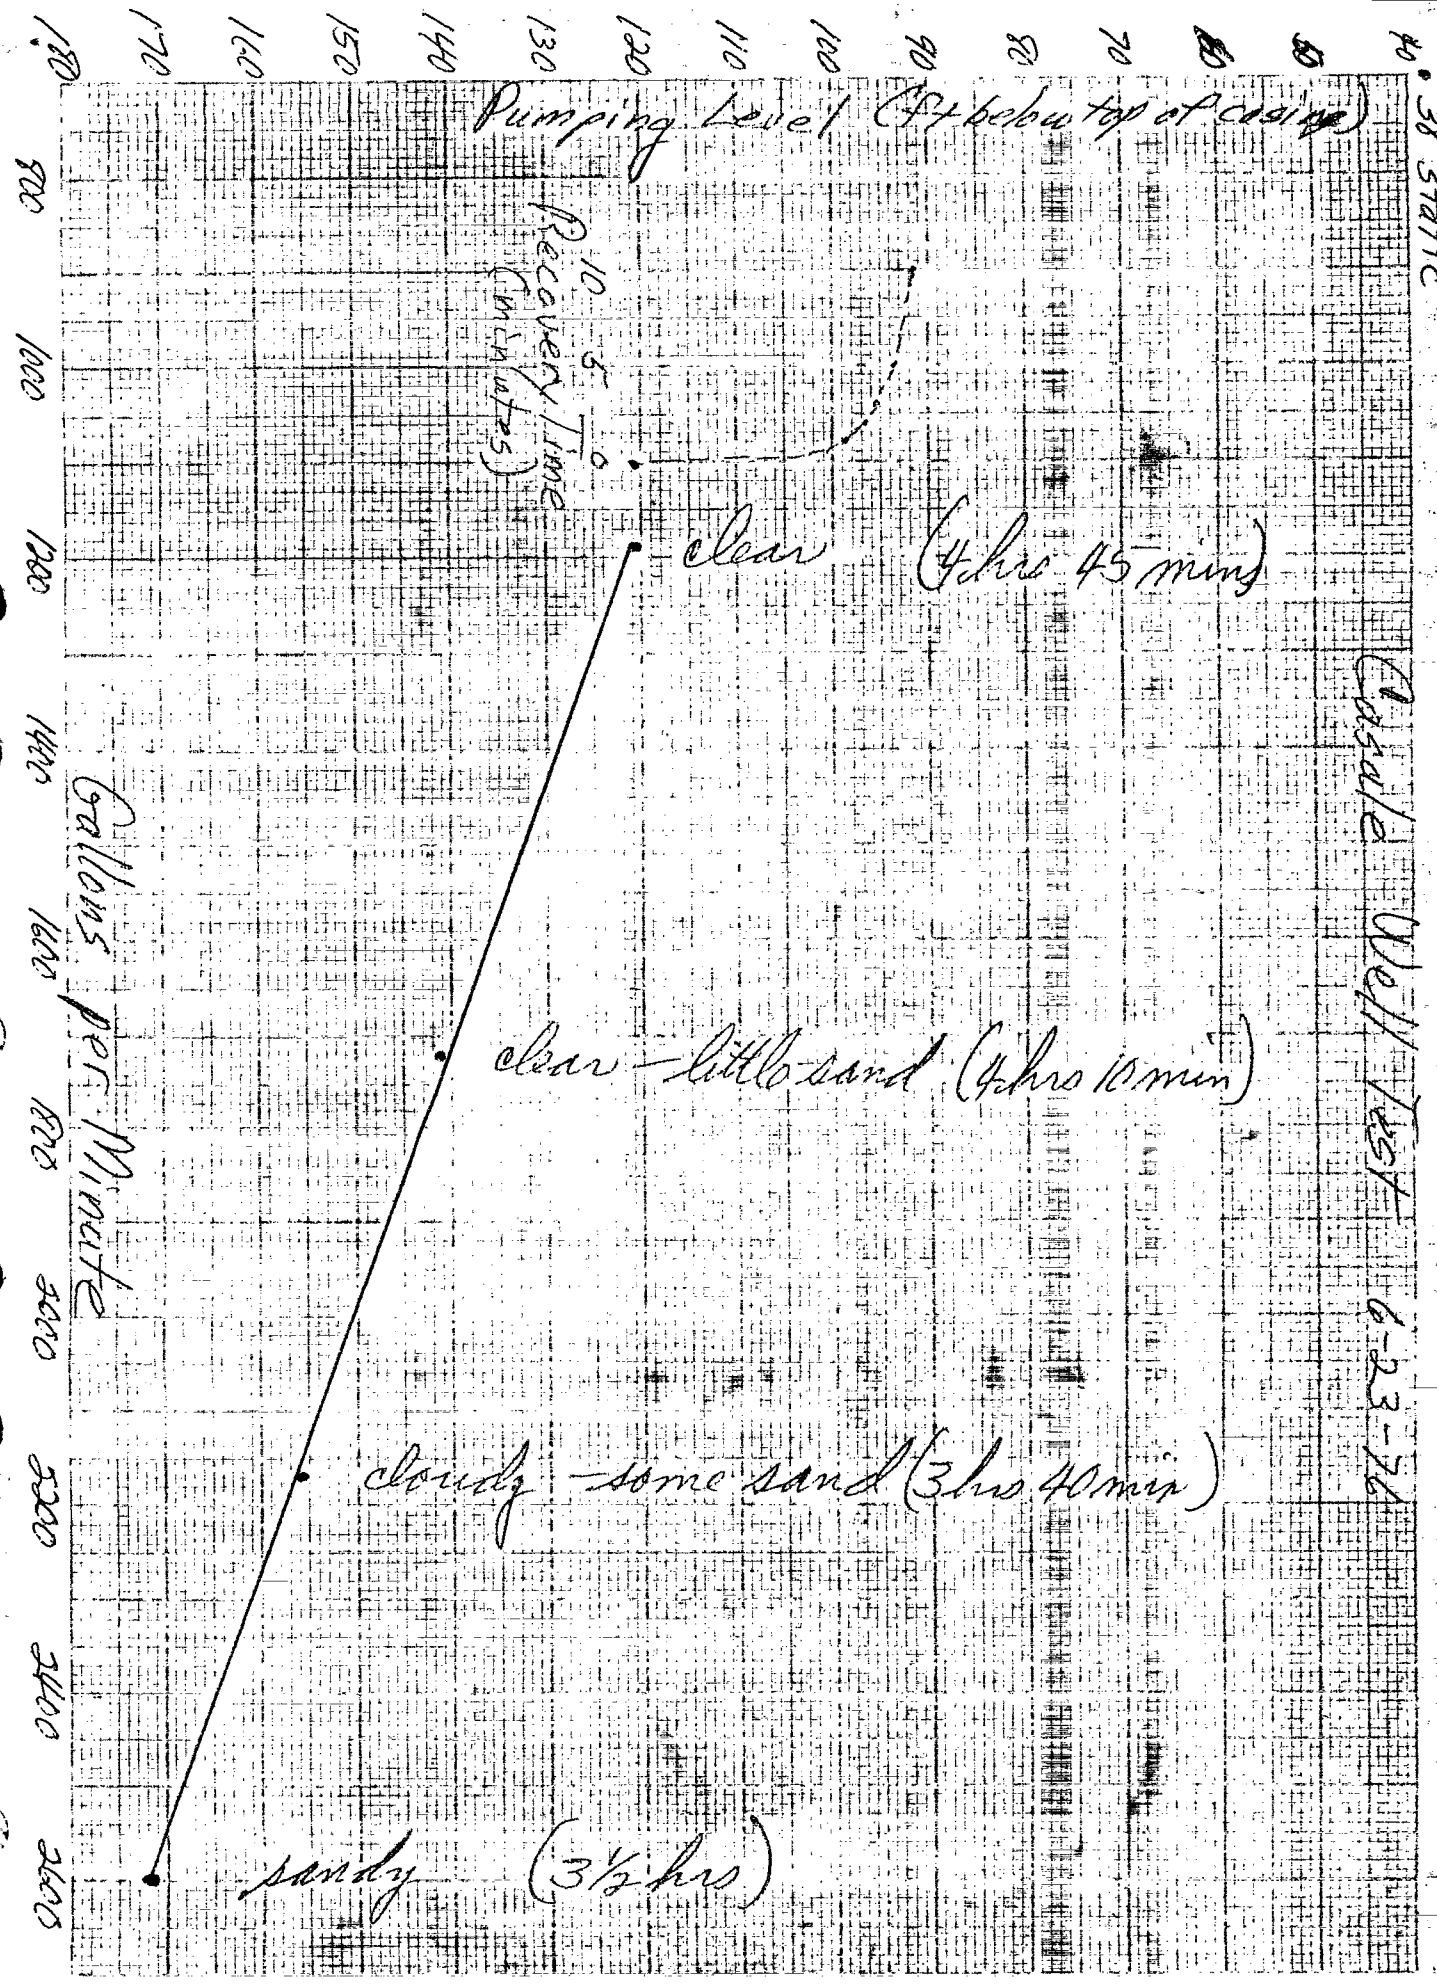 • 38 STATIC
Casale Well Test 6-23-76
Pumping Level (ft below top of casing)
40
50
60
70
80
90
100
110
120
130
140
150
160
170
180
10 5 0
Recovery Time
(minutes)
clear (4 hrs 45 mins)
clear - little sand (4 hrs 10 min)
cloudy - some sand (3 hrs 40 min)
sandy (3 1/2 hrs)
Gallons per Minute
800 1000 1200 1400 1600 1800 2000 2200 2400 2600